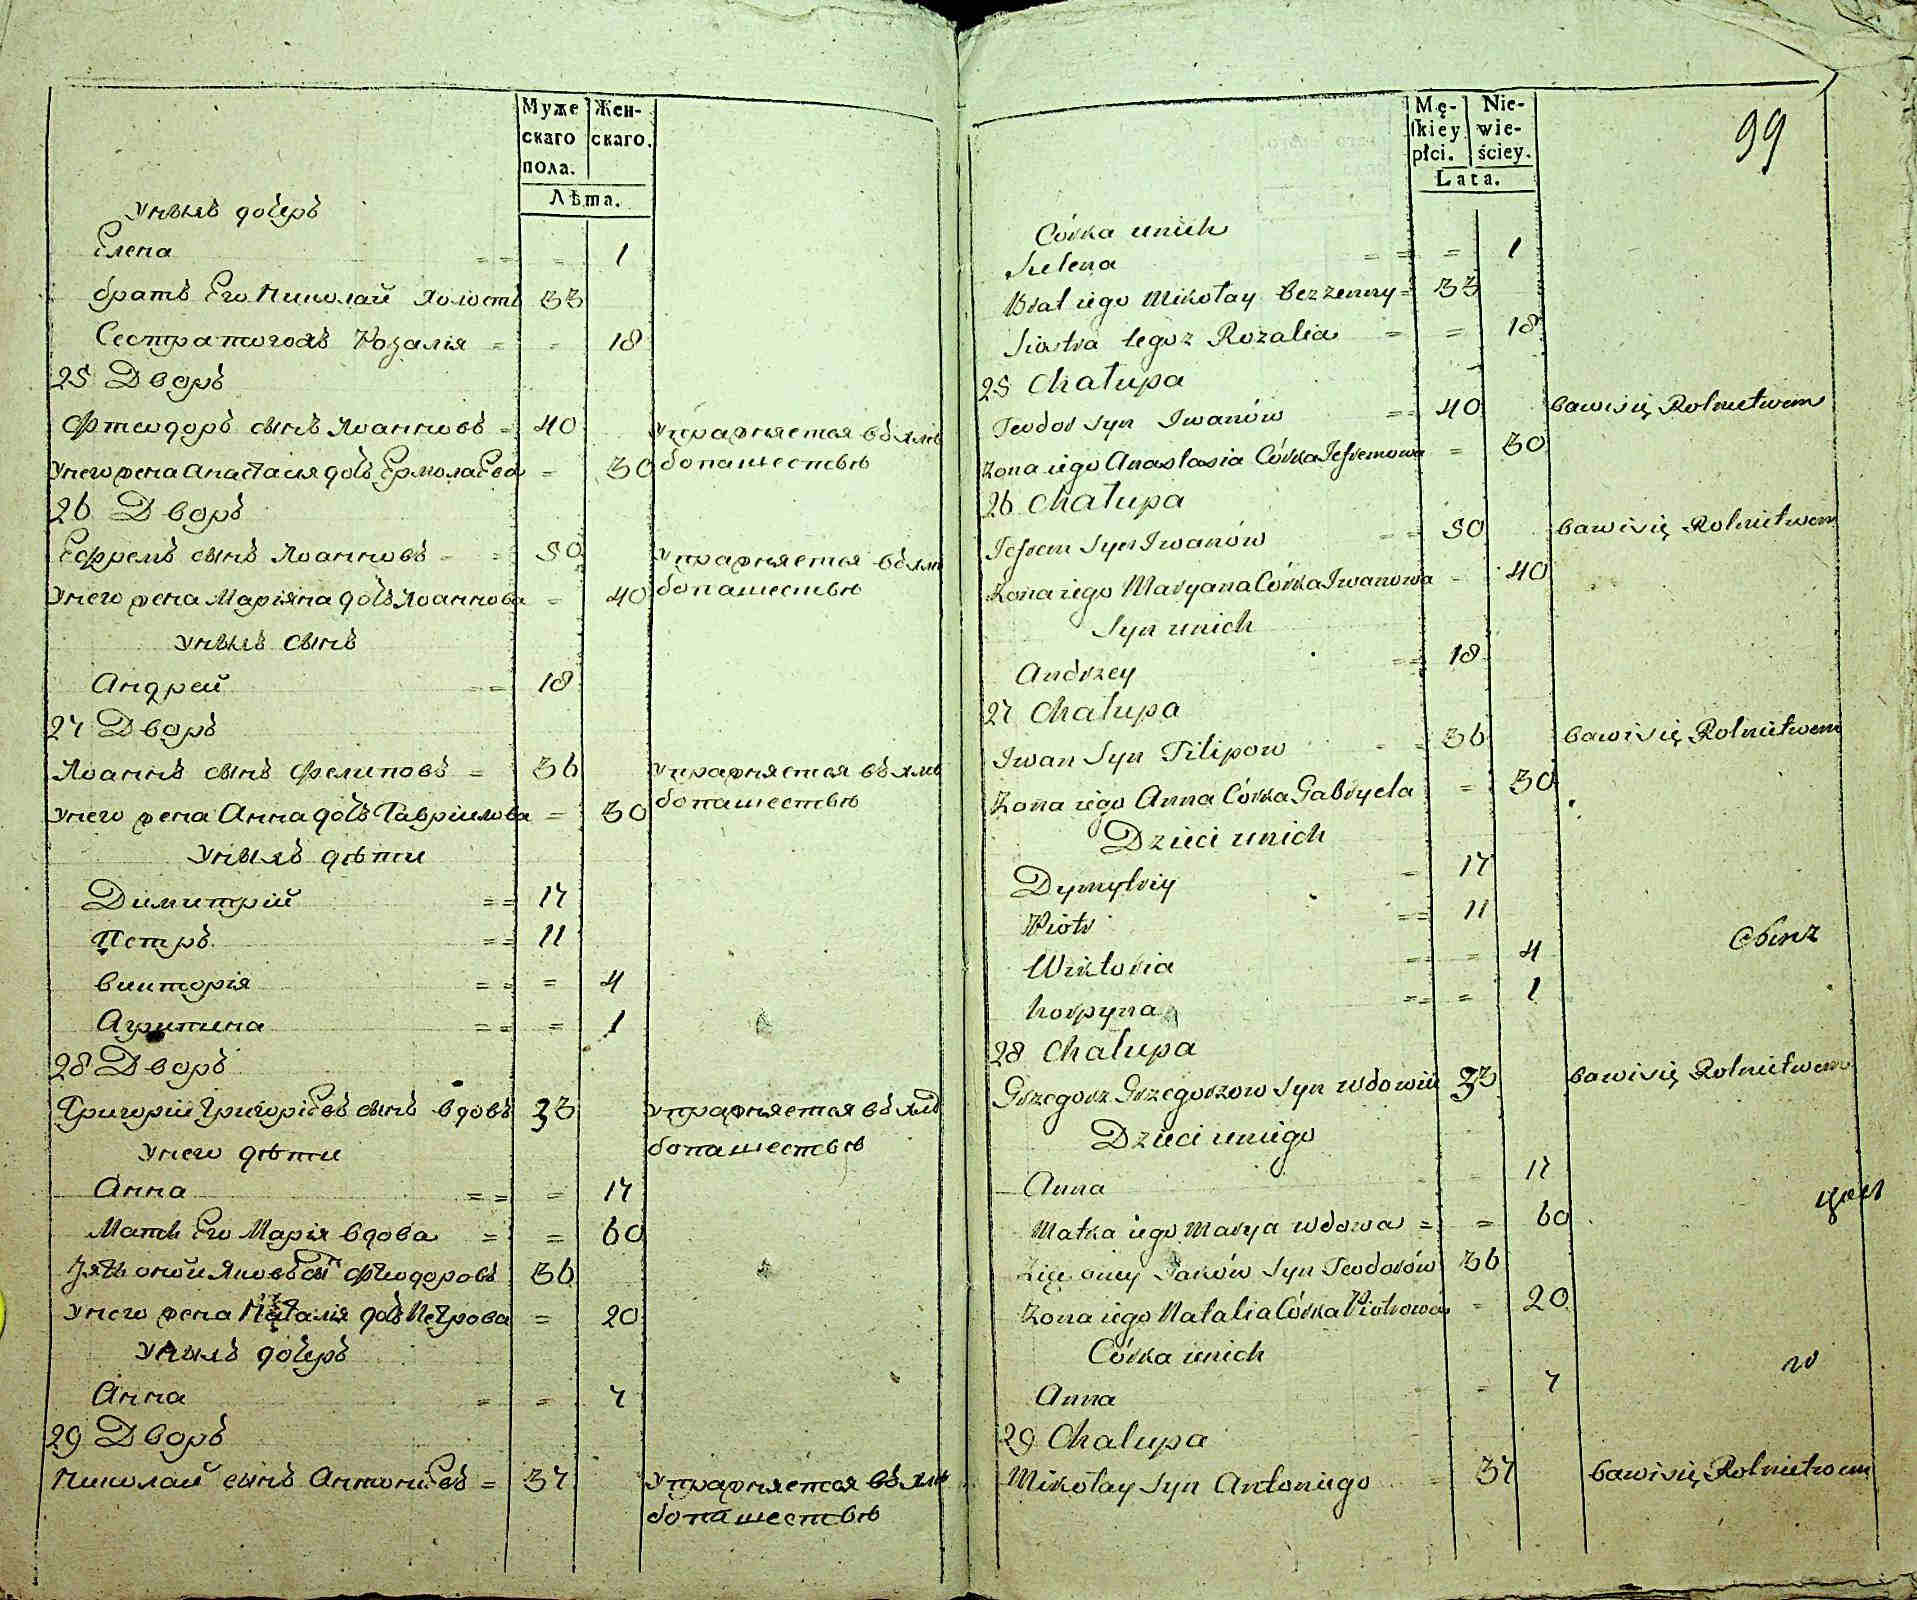 Муже Жен-
скаго скаго.
пола.
Лѣта.
Унихъ дочерь
Елена = = = 1
братъ Его Николай холостъ 33
Сестра тогожъ Розалія = = 18
25 Дворъ
Фтеодоръ сынъ Іоанновъ = 40 Упражняется въ хлѣ
бопашествѣ
Унего жена Анастасія дочь Ермолаева = 30
26 Дворъ
Ефремъ сынъ Іоанновъ = = 50 Упражняется въ хлѣ
бопашествѣ
Унего жена Маріяна дочь Іоаннова = 40
Унихъ сынъ
Андрей = = 18
27 Дворъ
Іоаннъ сынъ Фелиповъ = 36 Упражняется въ хлѣ
бопашествѣ
Унего жена Анна дочь Гавріилова = 30
Унихъ дѣти
Димитрій = = 17
Петръ = = 11
Викторія = = = 4
Агрипина = = = 1
28 Дворъ
Григорій Григоріевъ сынъ вдовъ 33 Упражняется въ хлѣ
бопашествѣ
Унего дѣти
Анна = = = 17
Мать Его Марія вдова = = 60
Зять оной Яковъ сынъ Фтеодоровъ 36
Унего жена Наталія дочь Петрова = 20
Унихъ дочерь
Анна = = 7
29 Дворъ
Николай сынъ Антоніевъ = 37 Упражняется въ хлѣ
бопашествѣ
Mę- Nie-
ſkiey wie-
płci. ściey.
Lata.
99
Córka unich
Helena = = = 1
Brat iego Mikołay bezżenny = 33
Siostra tegoż Rozalia = = 18
25 Chałupa
Teodor Syn Iwanów = = 40 bawi się Rolnictwem
Zona iego Anastasia Córka Jefremowa = 30
26 Chałupa
Jefrem Syn Iwanów = = 50 bawi się Rolnictwem
Zona iego Maryana Córka Iwanowa = 40
Syn unich
Andrzey = = 18
27 Chałupa
Iwan Syn Filipow = = 36 bawi się Rolnictwem
Zona iego Anna Córka Gabryela = 30
Dzieci unich
Dymytriy = 17
Piotr = = 11
Wiktoria = = = 4
horpyna = = = 1
28 Chałupa
Grzegorz Grzegorzow Syn wdowiec 33 bawi się Rolnictwem
Dzieci uniego
Anna = = 17
Matka iego Marya wdowa = = 60
Zięć oney Jaków Syn Teodorów 36
Zona iego Natalia Córka Piotrowa = 20
Córka unich
Anna = 7
29 Chałupa
Mikołay Syn Antoniego = 37 bawi się Rolnictwem